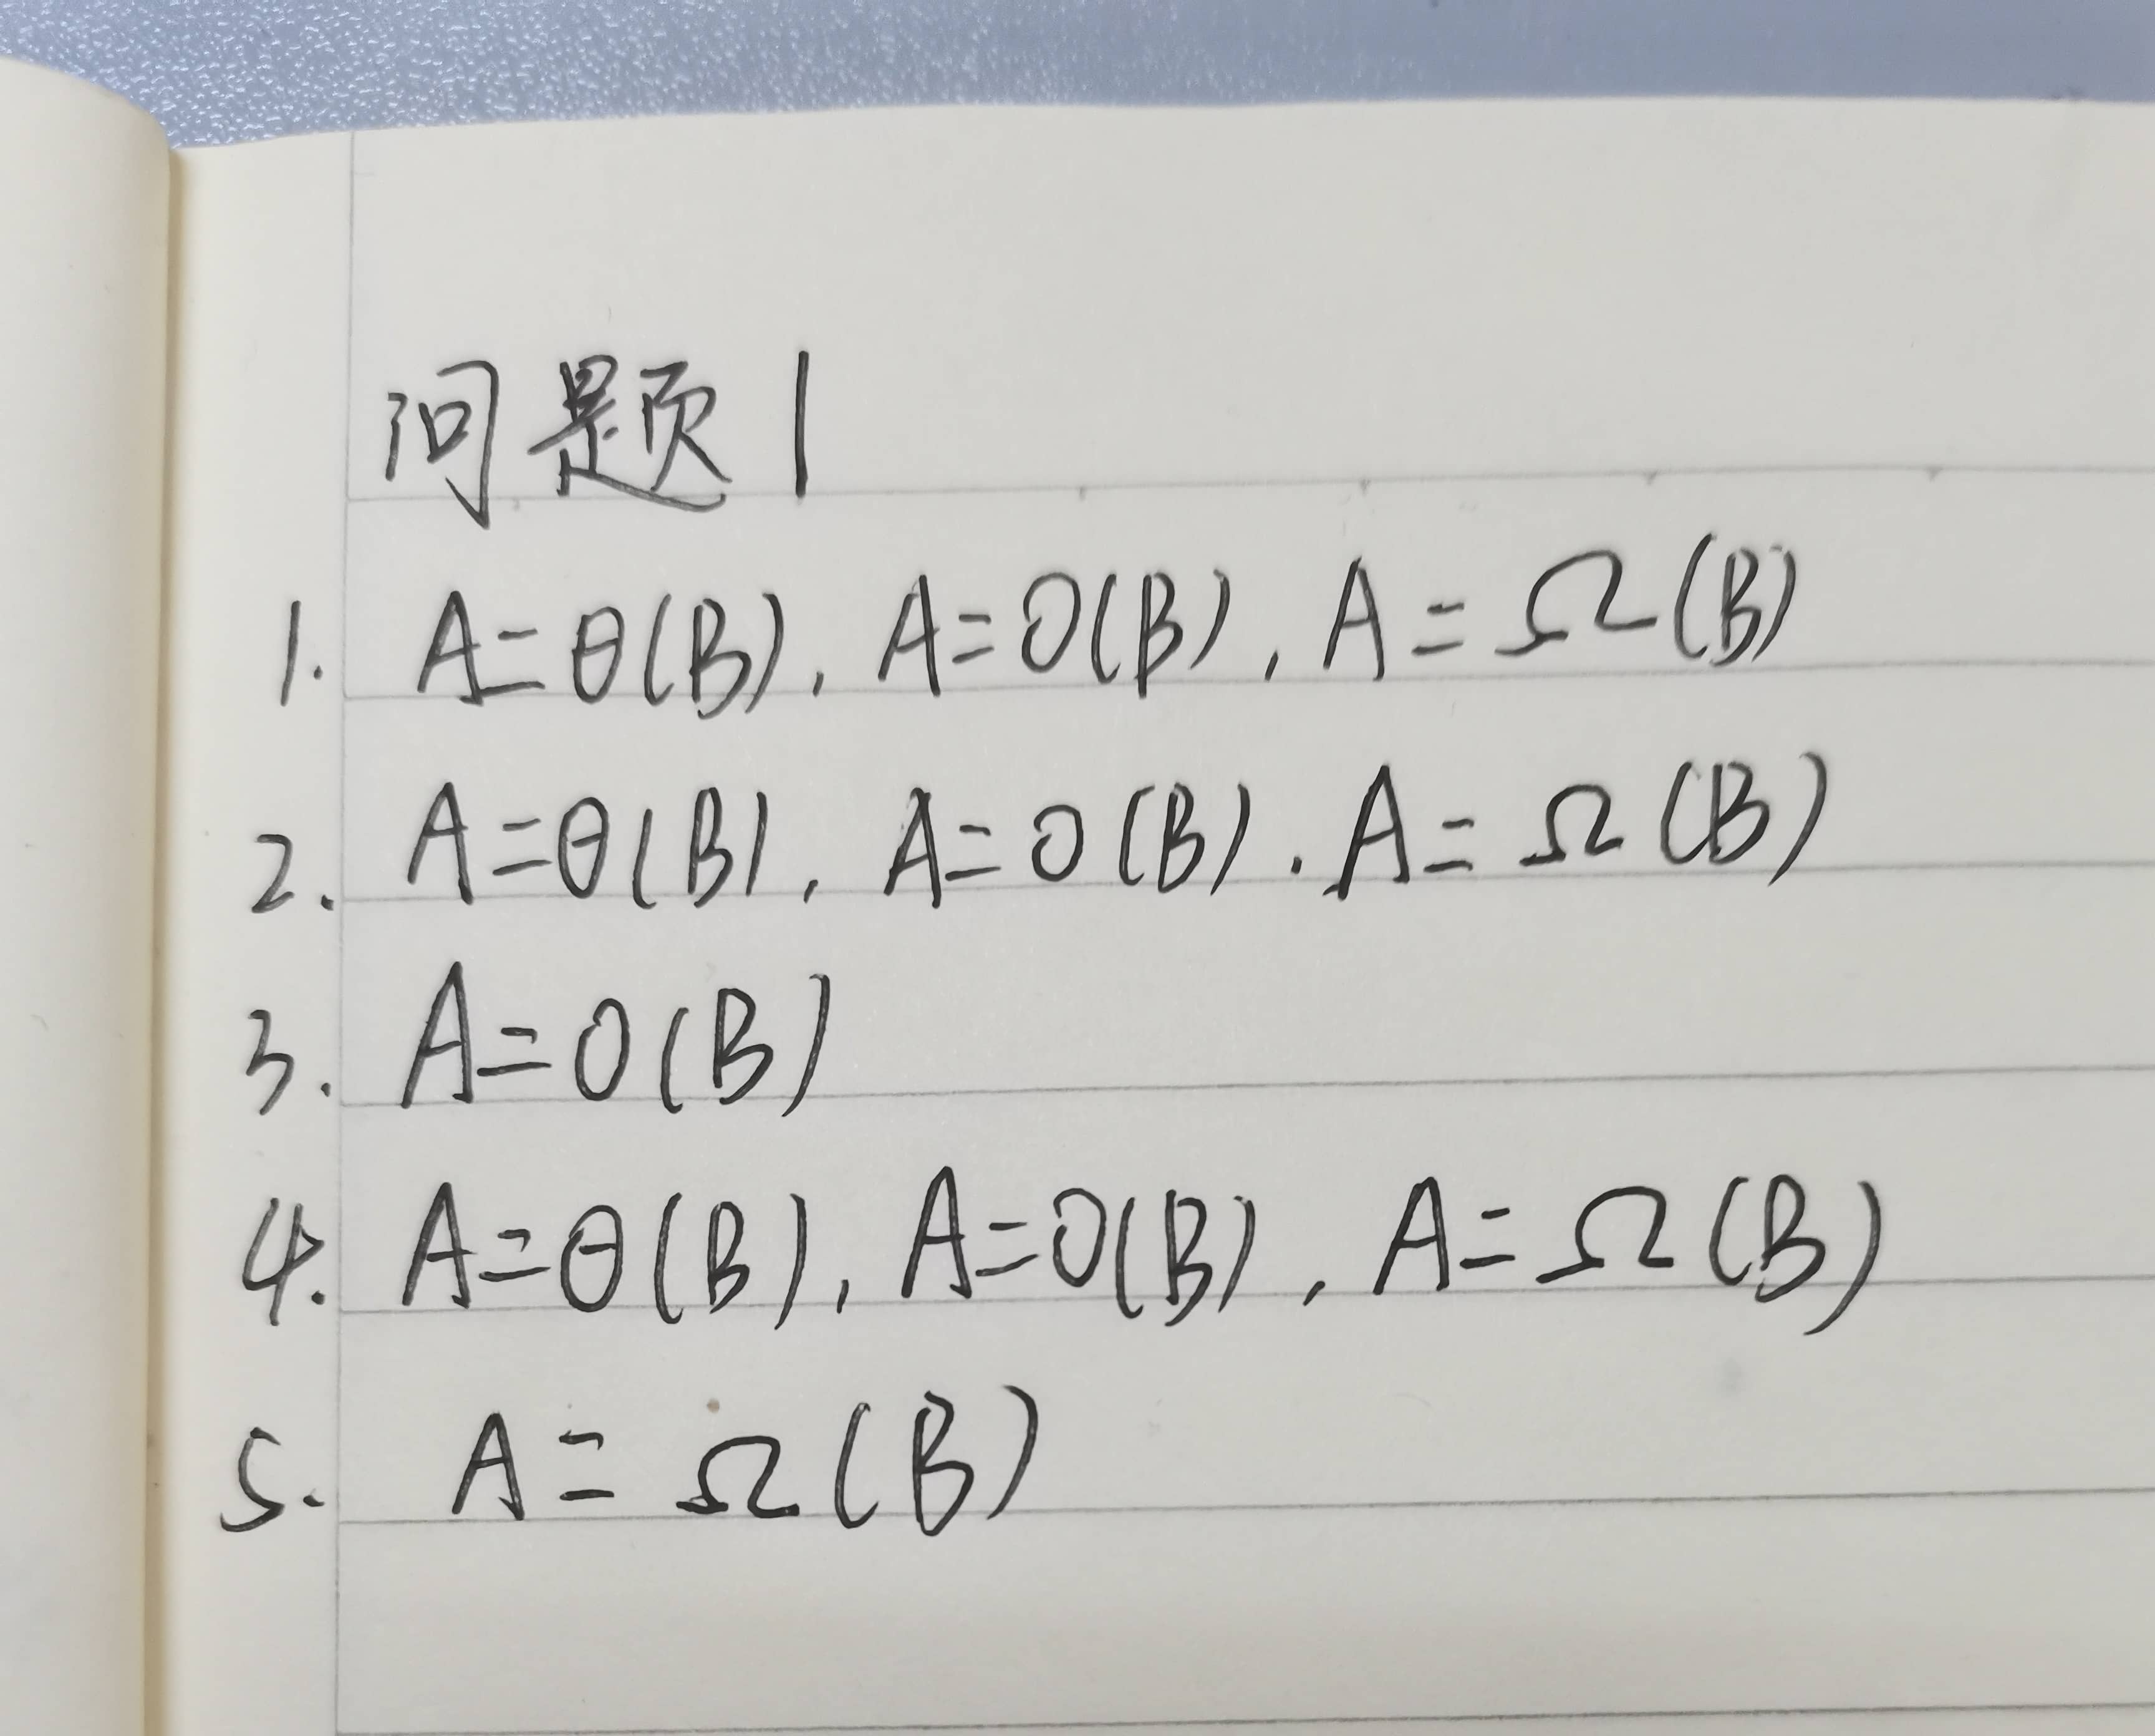 问题1
1. A=θ(B), A=O(B), A=Ω(B)
2. A=θ(B), A=O(B). A=Ω(B)
3. A=O(B)
4. A=θ(B), A=O(B), A=Ω(B)
5. A=Ω(B)